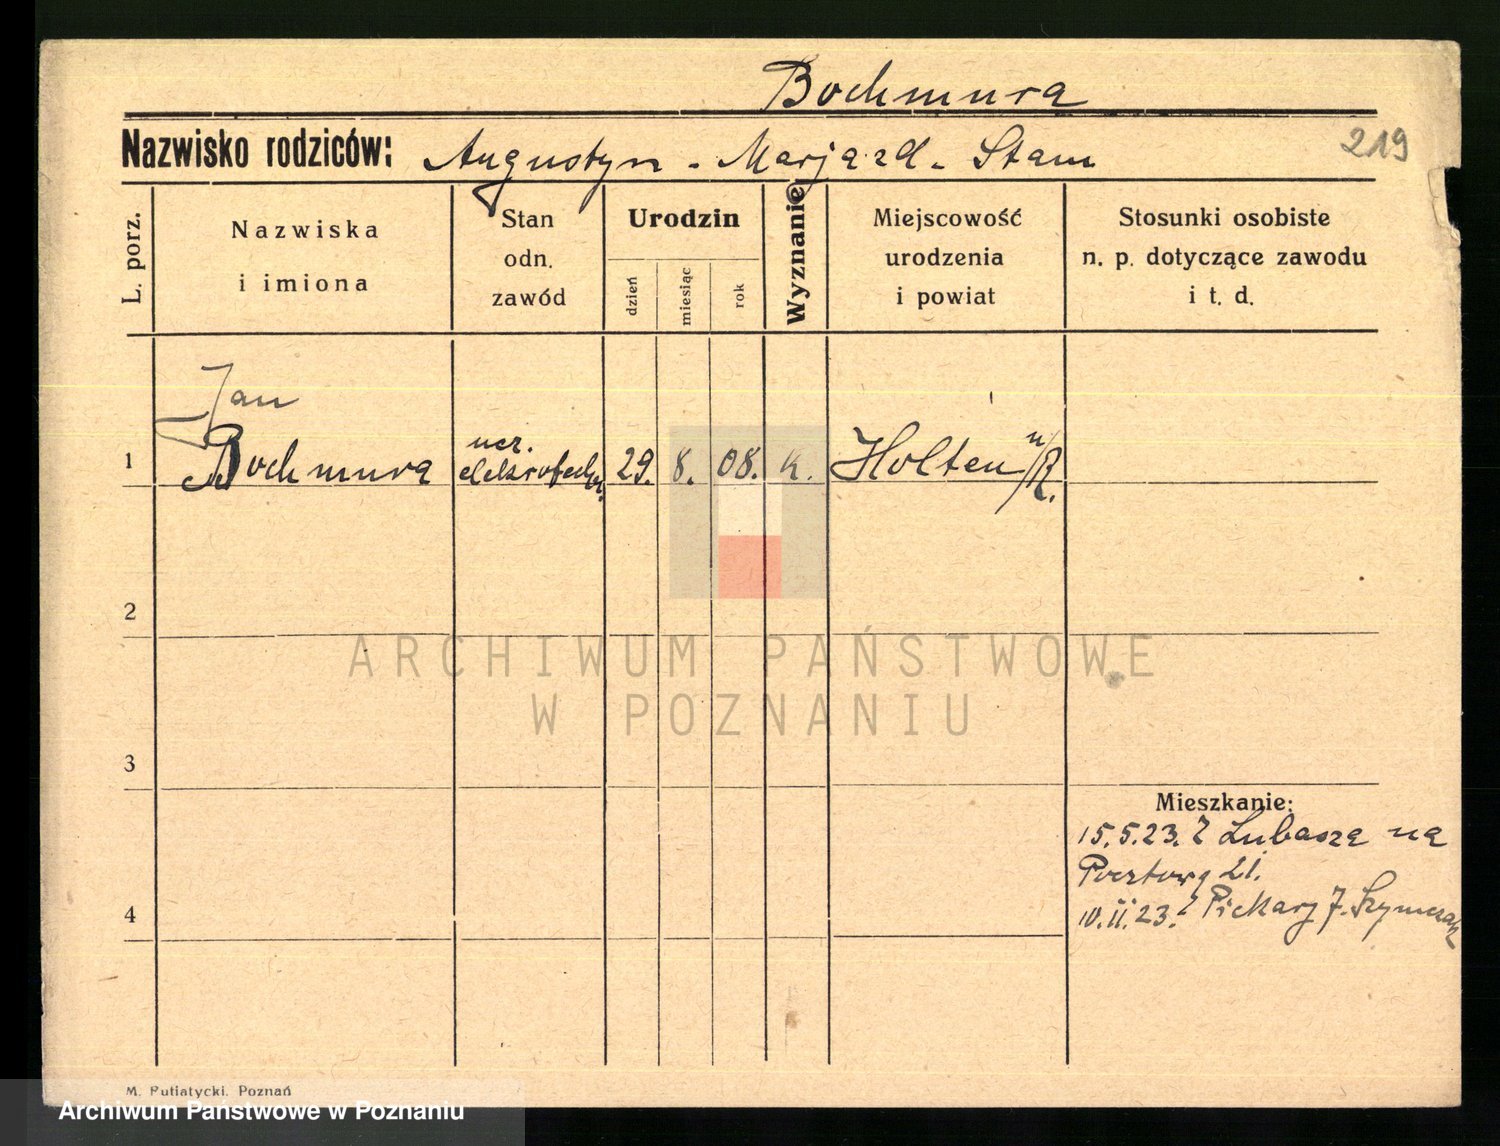 Bochmura
219
Nazwisko rodziców: Augustyn - Marja zd. Stam
L. porz.
Nazwiska
i imiona
Stan
odn.
zawód
Urodzin
dzień
miesiąc
rok
Wyznanie
Miejscowość
urodzenia
i powiat
Stosunki osobiste
n. p. dotyczące zawodu
i t. d.
Jan
1 Bochmura ucz. 29. 8. 08. k. Holten n/R.
elektrotechn.
2
ARCHIWUM PAŃSTWOWE
W POZNANIU
3
Mieszkanie:
15.5.23. Z Lubasza na
Pocztową 21.
4
10.II.23. Z Piekary 7. Szymczak
M. Putiatycki, Poznań
Archiwum Państwowe w Poznaniu